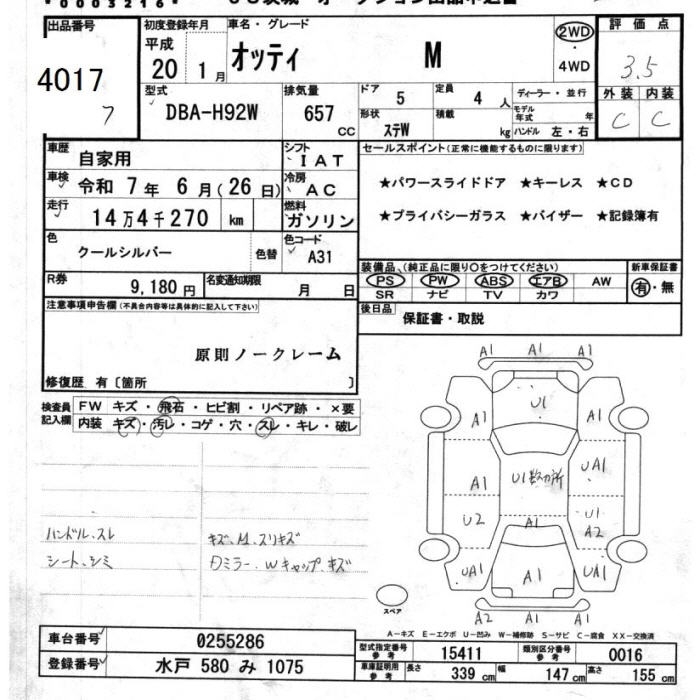 出品番号
4017
7
初度登録年月
平成
20 1月
車名・グレード
オッティ M
2WD
・
4WD
評価点
3.5
外装 内装
C C
型式
DBA-H92W
排気量
657
CC
ドア
5
定員
4人
形状
ステW
積載
kg
ディーラー・並行
モデル年式 年
ハンドル 左・右
車歴
自家用
シフト
IAT
車検
令和 7年 6月(26日)
冷房
AC
走行
14万4千270 km
燃料
ガソリン
色
クールシルバー
色替
色コード
A31
R券
9,180円
名変通知期限
月 日
セールスポイント(正常に機能するものに限ります)
★パワースライドドア ★キーレス ★CD
★プライバシーガラス ★バイザー ★記録簿有
装備品、(純正品に限り○をつけてください)
PS PW ABS エアB AW
SR ナビ TV カワ
新車保証書
有・無
後日品
保証書・取説
注意事項申告欄(不具合内容等は具体的に記入して下さい)
原則ノークレーム
修復歴 有〔箇所 〕
検査員記入欄
FW キズ・飛石・ヒビ割・リペア跡・×要
内装 キズ・汚レ・コゲ・穴・スレ・キレ・破レ
ハンドル、スレ
シート、シミ
キズ、M、スリキズ
Dミラー、Wキャップ、キズ
A1 A1 A1
A1 U1 A1
A1 U1数カ所 UA1
U2 A1 U1
A2
UA1 A1 UA1
A2 A1 A1
スペア
A-キズ E-エクボ U-凹み W-補修跡 S-サビ C-腐食 XX-交換済
車台番号
0255286
登録番号
水戸 580 み 1075
型式指定番号
参考
15411
類別区分番号
参考
0016
車庫証明用
参考
長さ
339 cm
幅
147 cm
高さ
155 cm